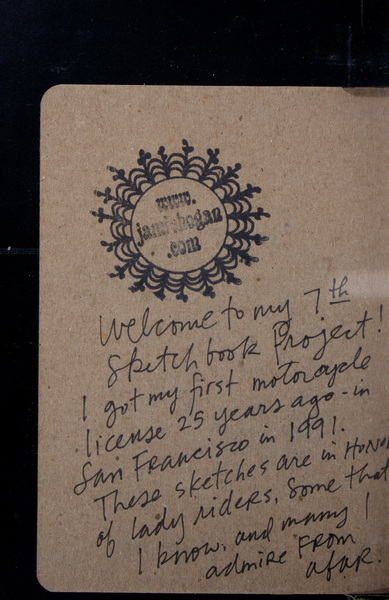 www.
jamiehogan
.com
Welcome to my 7th
Sketchbook Project!
I got my first motorcycle
license 25 years ago - in
San Francisco in 1991.
These sketches are in HONO
of lady riders, some that
I know, and many I
admire FROM
afar.